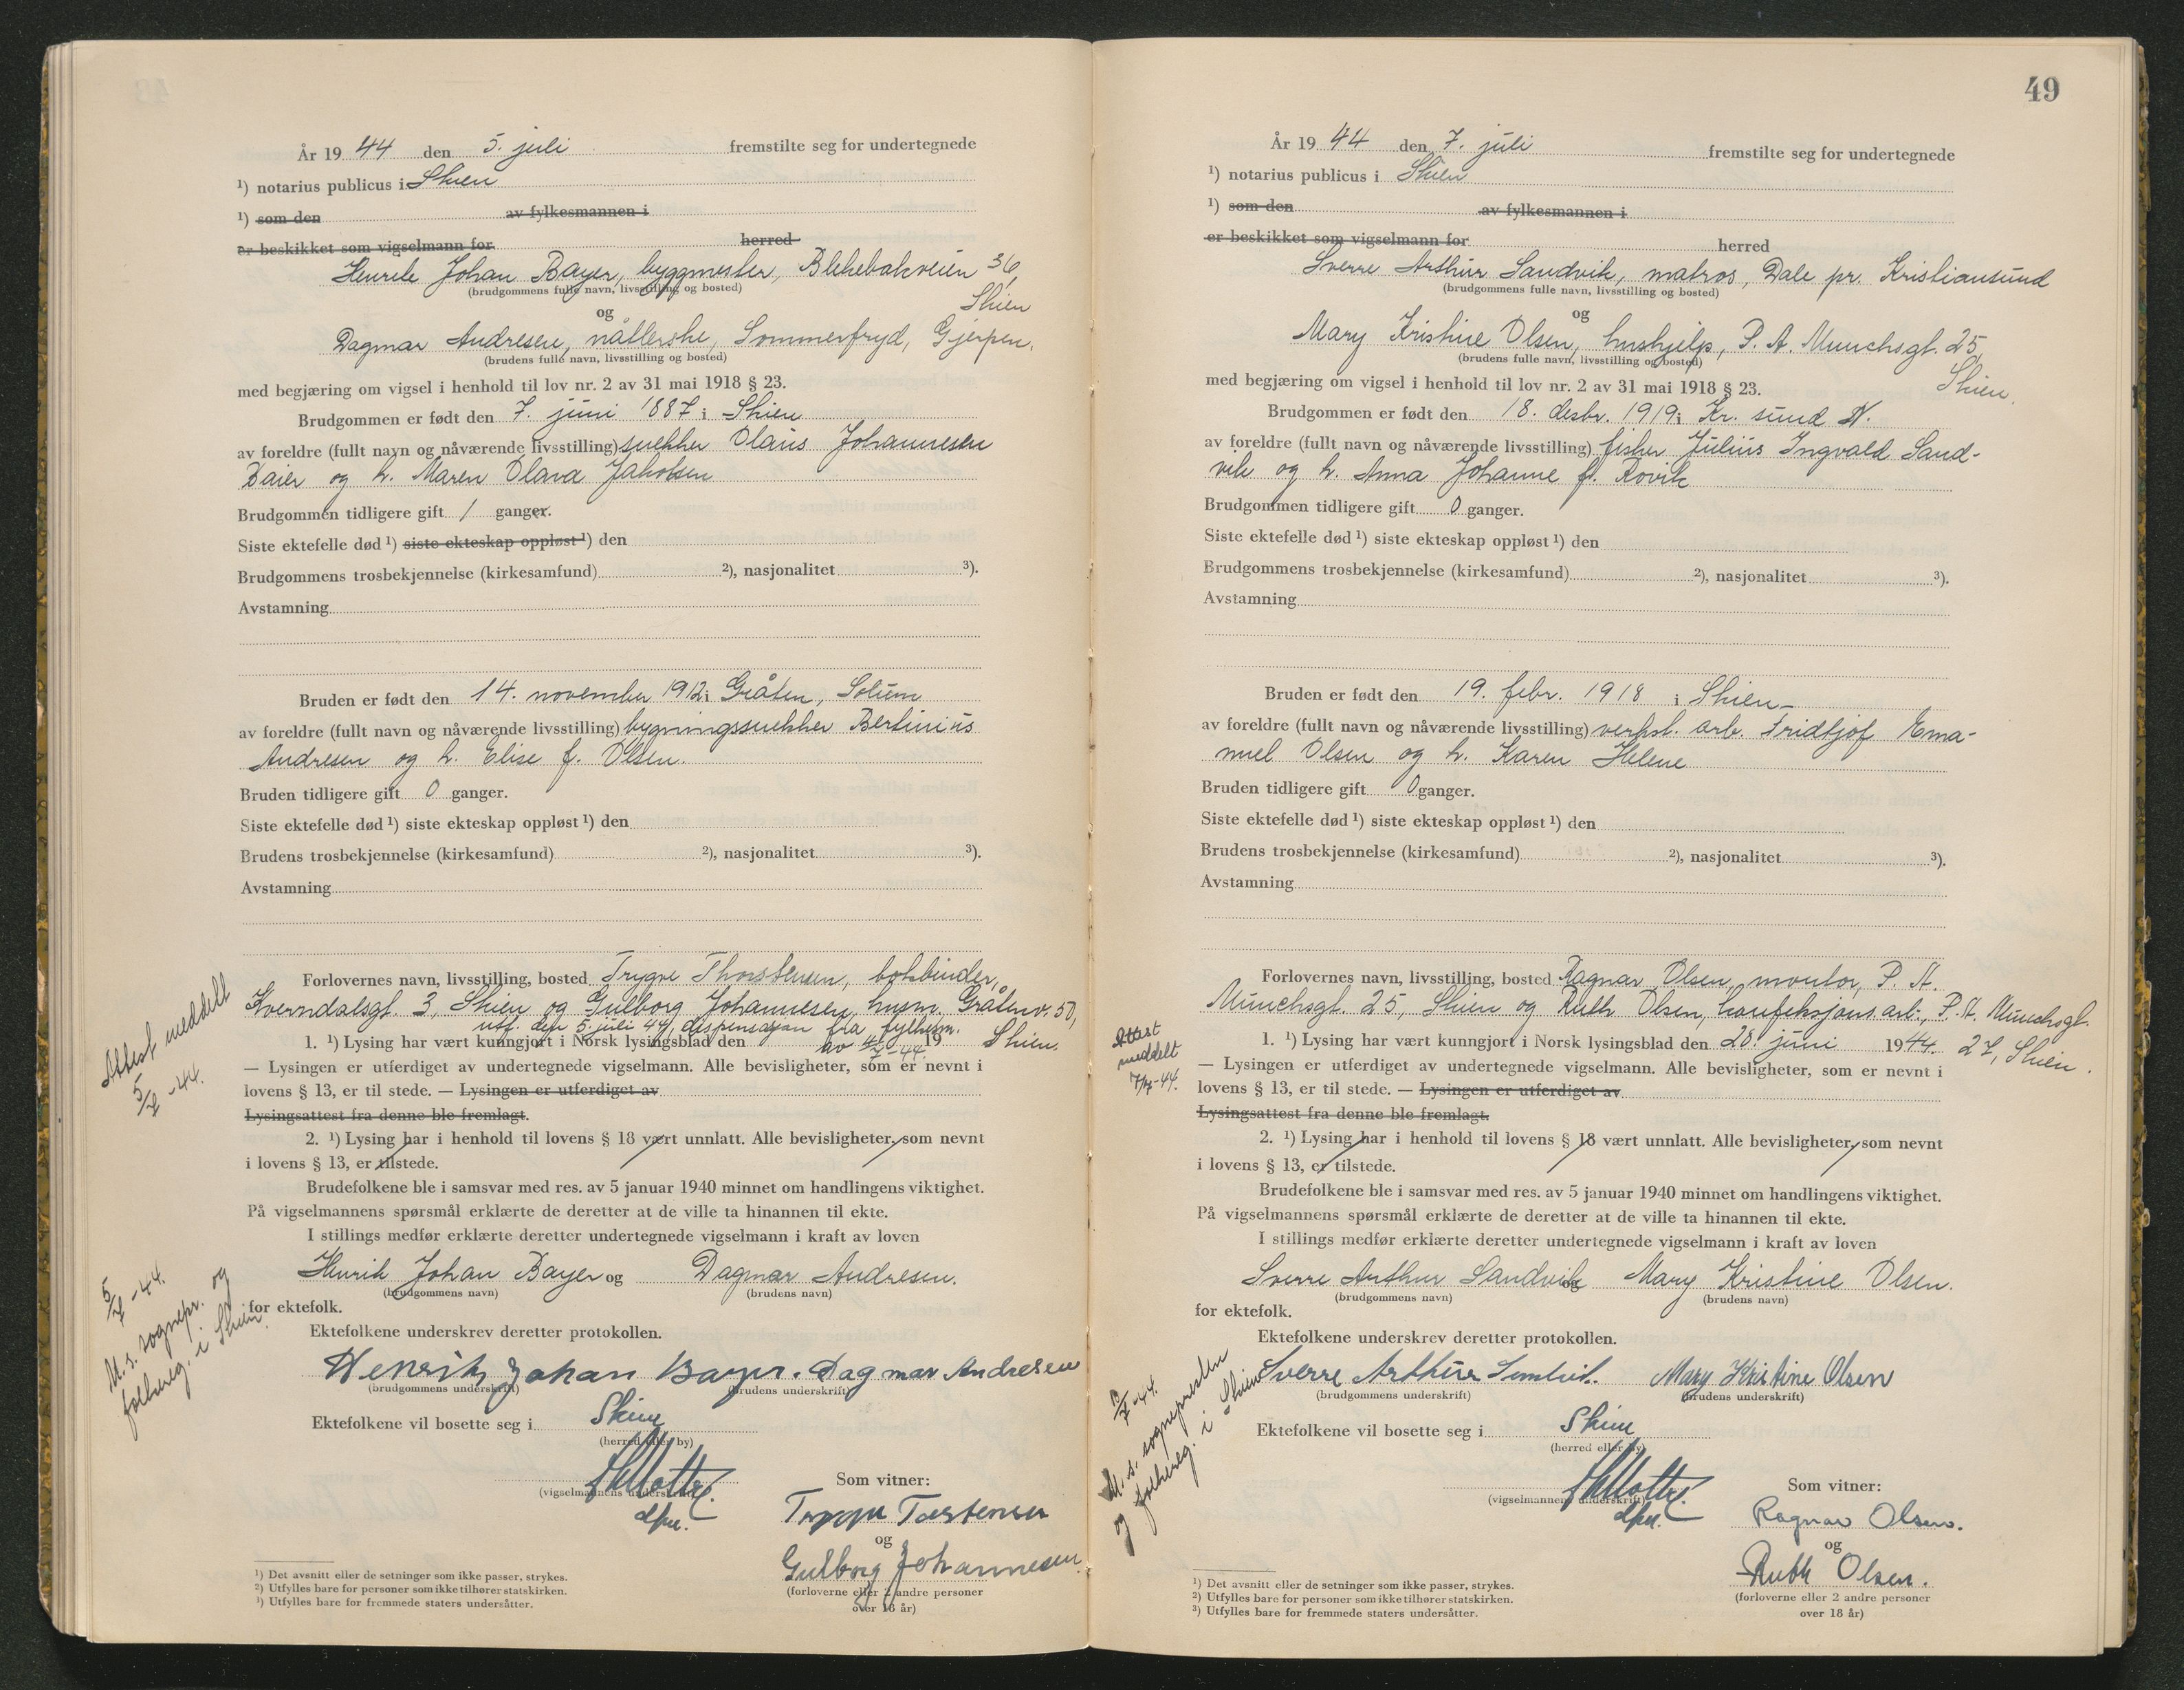 År 19 44 den 5. juli fremstilte seg for undertegnede
¹) notarius publicus i Skien
¹) som den av fylkesmannen i
er beskikket som vigselmann for herred
Henrik Johan Bayer, byggmester, Blekebakveien 36,
(brudgommens fulle navn, livsstilling og bosted)
Skien
og
Dagmar Andresen, nåtlerske, Sommerfryd, Gjerpen.
(brudens fulle navn, livsstilling og bosted)
med begjæring om vigsel i henhold til lov nr. 2 av 31 mai 1918 § 23.
Brudgommen er født den 7. juni 1887 i Skien
av foreldre (fullt navn og nåværende livsstilling) snekker Olaus Johannesen
Baier og h. Maren Olava Jakobsen
Brudgommen tidligere gift 1 ganger.
Siste ektefelle død ¹) siste ekteskap oppløst ¹) den
Brudgommens trosbekjennelse (kirkesamfund) ²), nasjonalitet ³).
Avstamning
Bruden er født den 14. november 1912 i Gråten, Solum
av foreldre (fullt navn og nåværende livsstilling) bygningssnekker Bertinius
Andresen og h. Elise f. Olsen.
Bruden tidligere gift 0 ganger.
Siste ektefelle død ¹) siste ekteskap oppløst ¹) den
Brudens trosbekjennelse (kirkesamfund) ²), nasjonalitet ³).
Avstamning
Forlovernes navn, livsstilling, bosted Trygve Thorstensen, bokbinder,
Kverndalsgt. 3, Skien og Gulborg Johannesen, husm. Gråtenv. 50,
Skien.
utf. den 5. juli 44, dispensasjon fra fylkesm.
av 4/7-44.
1. ¹) Lysing har vært kunngjort i Norsk lysingsblad den 19
— Lysingen er utferdiget av undertegnede vigselmann. Alle bevisligheter, som er nevnt i
lovens § 13, er til stede. — Lysingen er utferdiget av
Lysingsattest fra denne ble fremlagt.
2. ¹) Lysing har i henhold til lovens § 18 vært unnlatt. Alle bevisligheter, som nevnt
i lovens § 13, er tilstede.
Brudefolkene ble i samsvar med res. av 5 januar 1940 minnet om handlingens viktighet.
På vigselmannens spørsmål erklærte de deretter at de ville ta hinannen til ekte.
I stillings medfør erklærte deretter undertegnede vigselmann i kraft av loven
Henrik Johan Bayer og Dagmar Andresen.
(brudgommens navn) (brudens navn)
for ektefolk.
Ektefolkene underskrev deretter protokollen.
Henrik Johan Bayer. Dagmar Andresen
(brudgommens underskrift) (brudens underskrift)
Ektefolkene vil bosette seg i Skien
(herred eller by)
(vigselmannens underskrift)
dfm.
Som vitner:
Trygve Torstensen
og
Gulborg Johannesen
(forloverne eller 2 andre personer
over 18 år)
¹) Det avsnitt eller de setninger som ikke passer, strykes.
²) Utfylles bare for personer som ikke tilhører statskirken.
³) Utfylles bare for fremmede staters undersåtter.
Attest meddelt
5/7-44.
5/7-44.
M. s. sognepr. og
folkereg. i Skien.
49
År 19 44 den 7. juli fremstilte seg for undertegnede
¹) notarius publicus i Skien
¹) som den av fylkesmannen i
er beskikket som vigselmann for herred
Sverre Arthur Sandvik, matros, Dale pr. Kristiansund
(brudgommens fulle navn, livsstilling og bosted)
og
Mary Kristine Olsen, hushjelp, P. A. Munchsgt. 25,
(brudens fulle navn, livsstilling og bosted)
Skien.
med begjæring om vigsel i henhold til lov nr. 2 av 31 mai 1918 § 23.
Brudgommen er født den 18. desbr. 1919 i Kr. sund N.
av foreldre (fullt navn og nåværende livsstilling) fisker Julius Ingvald Sand-
vik og h. Anna Johanne f. Rovik
Brudgommen tidligere gift 0 ganger.
Siste ektefelle død ¹) siste ekteskap oppløst ¹) den
Brudgommens trosbekjennelse (kirkesamfund) ²), nasjonalitet ³).
Avstamning
Bruden er født den 19. febr. 1918 i Skien
av foreldre (fullt navn og nåværende livsstilling) verkst. arb. Fridtjof Ema-
nuel Olsen og h. Karen Helene
Bruden tidligere gift 0 ganger.
Siste ektefelle død ¹) siste ekteskap oppløst ¹) den
Brudens trosbekjennelse (kirkesamfund) ²), nasjonalitet ³).
Avstamning
Forlovernes navn, livsstilling, bosted Ragnar Olsen, montør, P. A.
Munchsgt. 25, Skien og Ruth Olsen, konfeksjons.arb., P. A. Munchsgt.
27, Skien.
1. ¹) Lysing har vært kunngjort i Norsk lysingsblad den 28. juni 1944.
— Lysingen er utferdiget av undertegnede vigselmann. Alle bevisligheter, som er nevnt i
lovens § 13, er til stede. — Lysingen er utferdiget av
Lysingsattest fra denne ble fremlagt.
2. ¹) Lysing har i henhold til lovens § 18 vært unnlatt. Alle bevisligheter, som nevnt
i lovens § 13, er tilstede.
Brudefolkene ble i samsvar med res. av 5 januar 1940 minnet om handlingens viktighet.
På vigselmannens spørsmål erklærte de deretter at de ville ta hinannen til ekte.
I stillings medfør erklærte deretter undertegnede vigselmann i kraft av loven
Sverre Arthur Sandvik og Mary Kristine Olsen.
(brudgommens navn) (brudens navn)
for ektefolk.
Ektefolkene underskrev deretter protokollen.
Sverre Arthur Sandvik. Mary Kristine Olsen
(brudgommens underskrift) (brudens underskrift)
Ektefolkene vil bosette seg i Skien
(herred eller by)
(vigselmannens underskrift)
dfm.
Som vitner:
Ragnar Olsen.
og
Ruth Olsen.
(forloverne eller 2 andre personer
over 18 år)
¹) Det avsnitt eller de setninger som ikke passer, strykes.
²) Utfylles bare for personer som ikke tilhører statskirken.
³) Utfylles bare for fremmede staters undersåtter.
Attest
meddelt
7/7-44.
M. s. sognepresten
og folkereg. i Skien